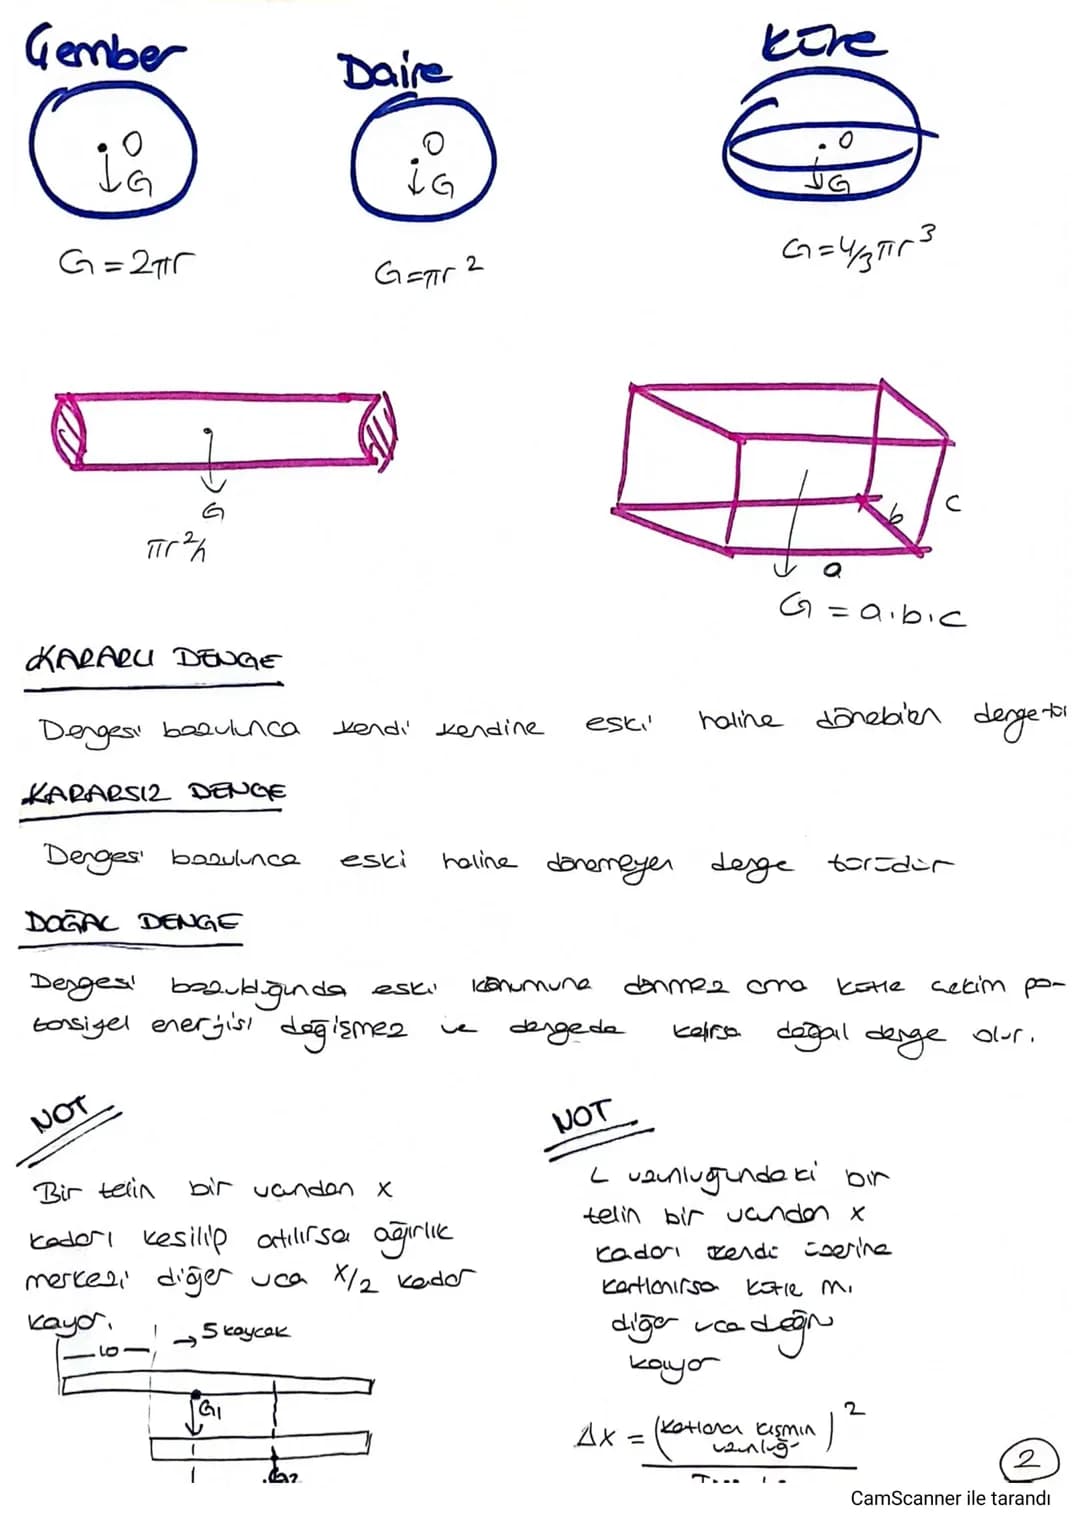 Çember
Daire
Küre
O
G
O
G
O
G
G = 2πr
G=πr²
G=4/3πr³
G
πr²h
a
b
c
G = a.b.c
KARARLI DENGE
Dengesi bozulunca kendi kendine eski haline dönebilen denge tü
KARARSIZ DENGE
Dengesi bozulunca eski haline dönemeyen denge türüdür
DOĞAL DENGE
Dengesi bozulduğunda eski konumuna dönmez ama kütle çekim po-
tansiyel enerjisi değişmez ve dengede kalırsa doğal denge olur.
NOT
Bir telin bir ucundan x
kadarı kesilip atılırsa ağırlık
merkezi diğer uca x/2 kadar
kayar.
10
→ 5 kayacak
G1
G2
NOT
L uzunluğundaki bir
telin bir ucundan x
kadarı kendi üzerine
katlanırsa kütle m.
diğer uca doğru
kayar
Δx = (katlanan kısmın uzunluğu)²
2
CamScanner ile tarandı